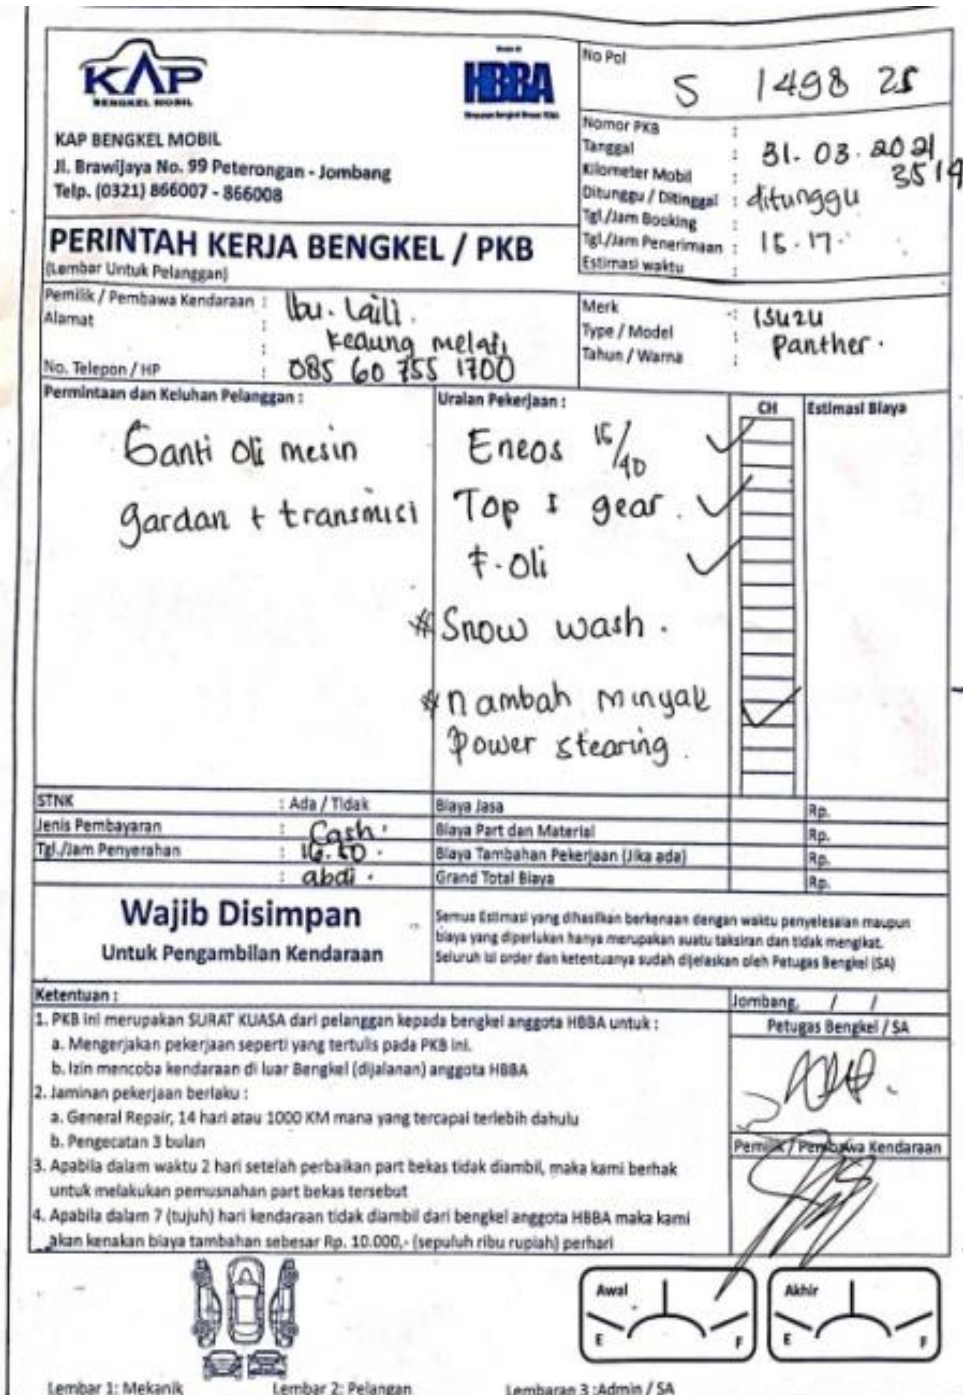 KAP
BENGKEL MOBIL
HBBA
KAP BENGKEL MOBIL
Jl. Brawijaya No. 99 Peterongan - Jombang
Telp. (0321) 866007 - 866008
PERINTAH KERJA BENGKEL / PKB
(Lembar Untuk Pelanggan)
No Pol
S 1498 ZS
Nomor PKB :
Tanggal : 31. 03. 2021
Kilometer Mobil : 3519
Ditunggu / Ditinggal : ditunggu
Tgl./Jam Booking :
Tgl./Jam Penerimaan : 15.17.
Estimasi waktu :
Pemilik / Pembawa Kendaraan : Ibu. Laili.
Alamat : Kedung melati
No. Telepon / HP : 085 60 755 1700
Merk : ISUZU
Type / Model : Panther.
Tahun / Warna :
Permintaan dan Keluhan Pelanggan :
Ganti Oli mesin
gardan + transmisi
Uraian Pekerjaan :
CH
Estimasi Biaya
Eneos 15/40
Top 1 gear.
F. Oli
* Snow wash.
* Nambah minyak
Power stearing.
STNK : Ada / Tidak
Jenis Pembayaran : Cash.
Tgl./Jam Penyerahan : 16.50.
: abdi.
Biaya Jasa Rp.
Biaya Part dan Material Rp.
Biaya Tambahan Pekerjaan (Jika ada) Rp.
Grand Total Biaya Rp.
Wajib Disimpan
Untuk Pengambilan Kendaraan
Semua Estimasi yang dihasilkan berkenaan dengan waktu penyelesaian maupun
biaya yang diperlukan hanya merupakan suatu taksiran dan tidak mengikat.
Seluruh isi order dan ketentuanya sudah dijelaskan oleh Petugas Bengkel (SA)
Ketentuan :
1. PKB ini merupakan SURAT KUASA dari pelanggan kepada bengkel anggota HBBA untuk :
a. Mengerjakan pekerjaan seperti yang tertulis pada PKB ini.
b. Izin mencoba kendaraan di luar Bengkel (dijalanan) anggota HBBA
2. Jaminan pekerjaan berlaku :
a. General Repair, 14 hari atau 1000 KM mana yang tercapai terlebih dahulu
b. Pengecatan 3 bulan
3. Apabila dalam waktu 2 hari setelah perbaikan part bekas tidak diambil, maka kami berhak
untuk melakukan pemusnahan part bekas tersebut
4. Apabila dalam 7 (tujuh) hari kendaraan tidak diambil dari bengkel anggota HBBA maka kami
akan kenakan biaya tambahan sebesar Rp. 10.000,- (sepuluh ribu rupiah) perhari
Jombang, / /
Petugas Bengkel / SA
Pemilik / Pembawa Kendaraan
Awal
E F
Akhir
E F
Lembar 1: Mekanik
Lembar 2: Pelangan
Lembaran 3 :Admin / SA